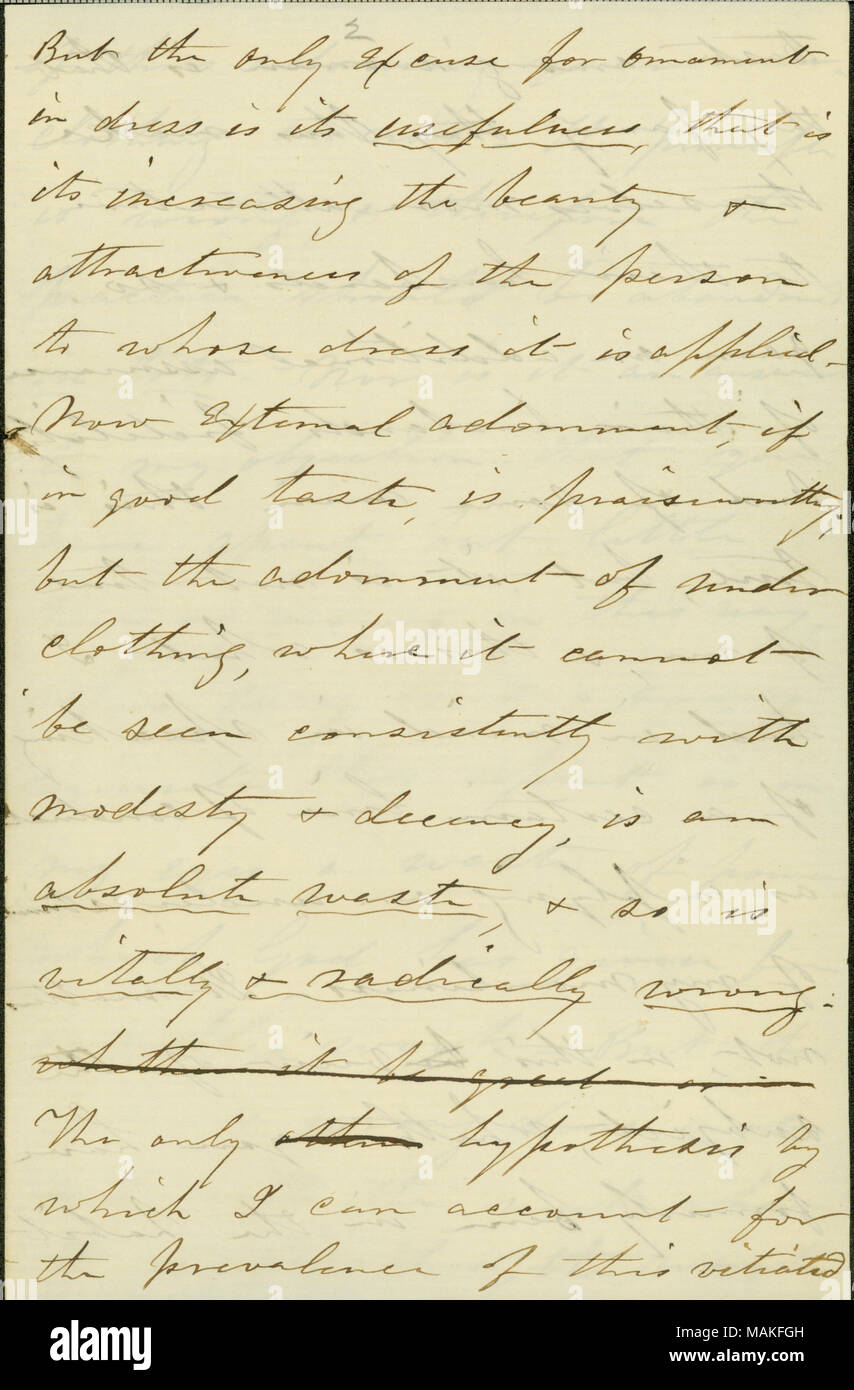 2
But the only excuse for ornament
in dress is its usefulness, that is
its increasing the beauty &
attractiveness of the person
to whose dress it is applied-
Now external adornment, if
in good taste, is praiseworthy;
but the adornment of under
clothing, where it cannot
be seen consistently with
modesty & decency, is an
absolute waste, & so is
vitally & radically wrong.
whether it be great or in
The only other hypothesis by
which I can account for
the prevalence of this vitiated
alamy
Image ID: MAKFGH
www.alamy.com